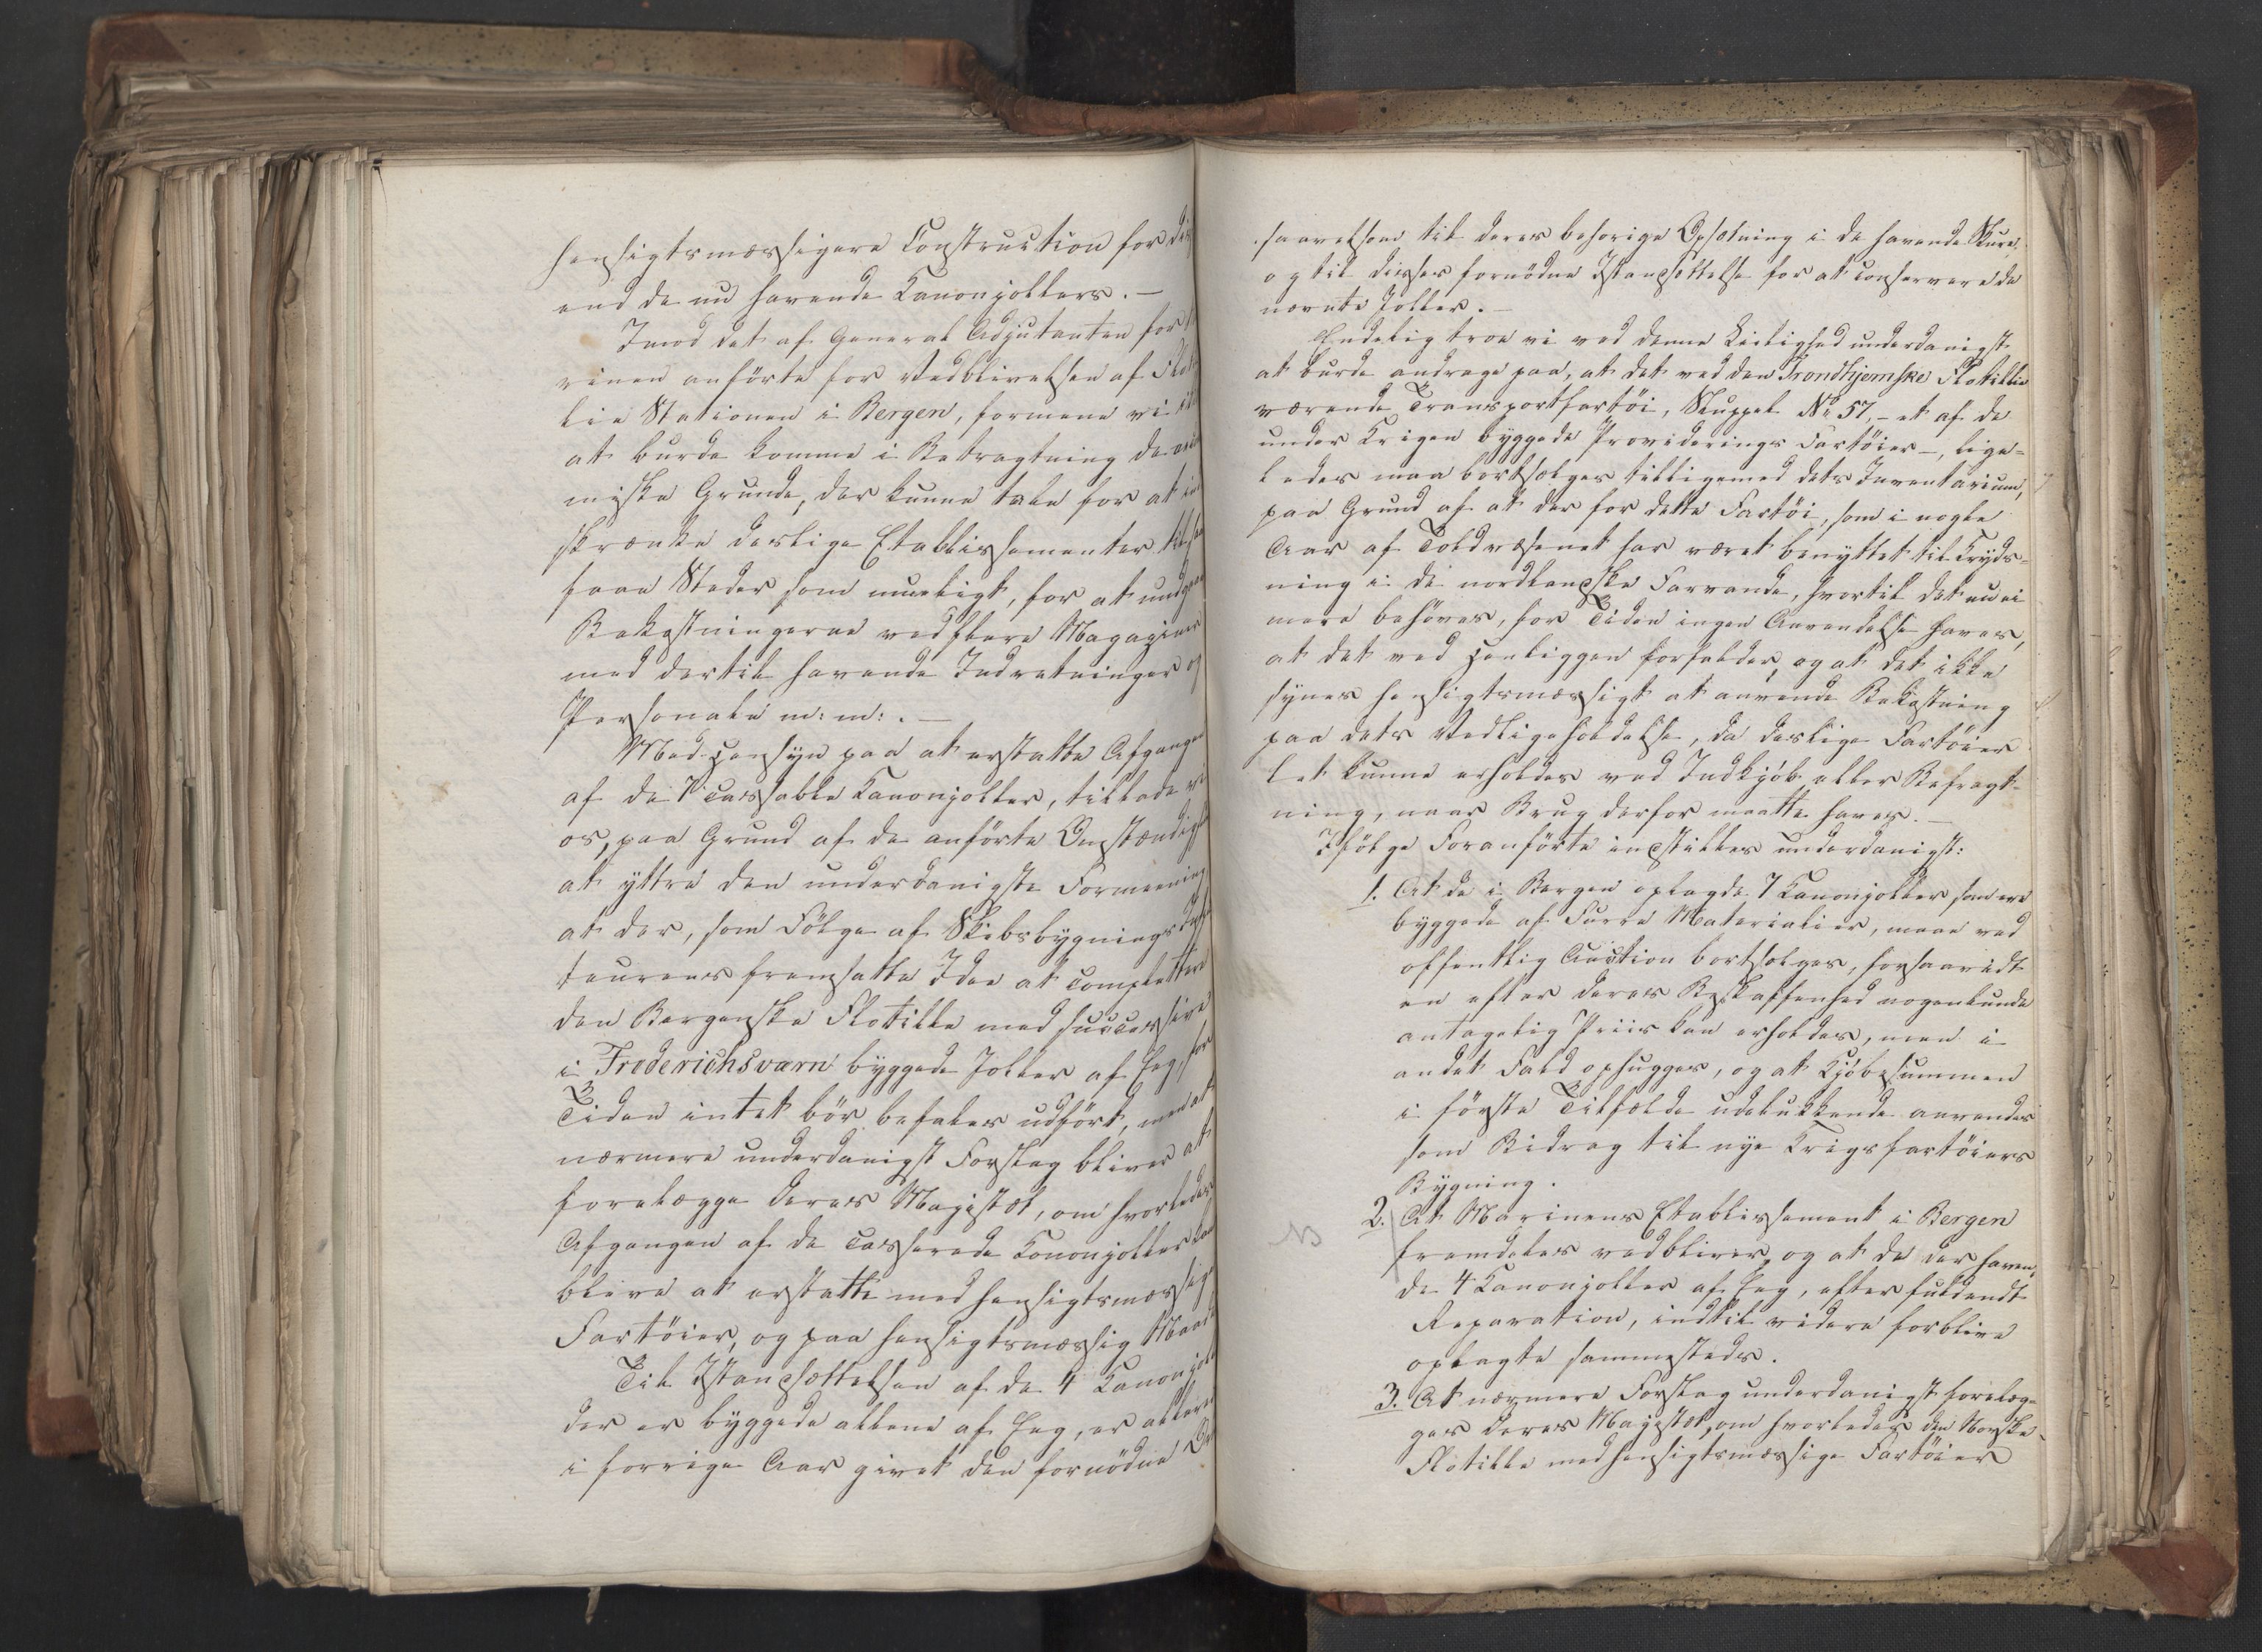 hensigtsmæssigere Construction for
end de nu havende Kanonjollers. –
Imod det af General Adjutanten for
rinen anförte for Vedblivelsen af
lie Stationen i Bergen, formene vi
at burde komme i Betragtning de
miske Grunde, der kunne tale for at
skrænke deslige Etablissementer til
faae Steder som mueligt, for at undgaae
Bekostningerne ved flere Magaziner
med dertil havende Indretninger og
Personale m: m: . –
Med Hensyn paa at erstatte Afgangen
af de 7 cassable Kanonjoller, tillade vi
os, paa Grund af de anförte Omstændig
at yttre den underdanigste Formeening
at der, som Fölge af Skibsbygnings
teurens fremsatte Idee at complettere
den Bergenske Flotille med successive
i Frederichsværn byggede Joller af Eeg, for
Tiden intet bör befales udfört, men at
nærmere underdanigst Forslag bliver at
forelægge Deres Majestæt, om hvorledes
Afgangen af de casserede Kanonjoller kan
blive at erstatte med hensigtsmæssige
Fartöier, og paa hensigtsmæssig Maade
Til Istandsættelsen af de 4 Kanonjoller
der er byggede allene af Eeg, er allerede
i forrige Aar givet den fornödne
saavelsom til deres behorige Opsætning i de havende Skure,
og til disses fornödne Istandsættelse for at conservere de
nævnte Joller. –
Endelig troe vi ved denne Leilighed underdanigst
at burde andrage paa, at det ved den Trondhjemske Flotille
værende Transportfartöi, Skuppel No 57, – et af de
under Krigen byggede Providerings Fartöier –, lige-
ledes maa bortsælges tilligemed dets Inventarium,
paa Grund af at der for dette Fartöi, som i nogle
Aar af Toldvæsenet har været benyttet til Kryds-
ning i de nordlandske Farvande, hvortil det nu ei
mere behöves, for Tiden ingen Anvendelse haves,
at det ved Henliggen forfalder, og at det ikke
synes hensigtsmæssigt at anvende Bekostning
paa dets Vedligeholdelse, da deslige Fartöier
let kunne erholdes ved Indkjöb eller Befragt-
ning, naar Brug derfor maatte haves. –
Ifölge Foranförte indstilles underdanigst:
1. At de i Bergen oplagde 7 Kanonjoller som ere
byggede af Furre Materialier, maae ved
offentlig Auction bortsælges, forsaavidt
en efter deres Beskaffenhed nogenlunde
antagelig Priis kan erholdes, men i
andet Fald ophugges, og at Kjöbesummen
i förste Tilfælde udelukkende anvendes
som Bidrag til nye Krigsfartöiers
Bygning.
2. At Marinens Etablissement i Bergen
fremdeles vedbliver, og at de der haven-
de 4 Kanonjoller af Eeg, efter fuldendt
Reparation, indtil videre forblive
oplagte sammesteds.
3. At nærmere Forslag underdanigst forelæg-
ges Deres Majestæt, om hvorledes den Norske
Flotille med hensigtsmæssige Fartöier